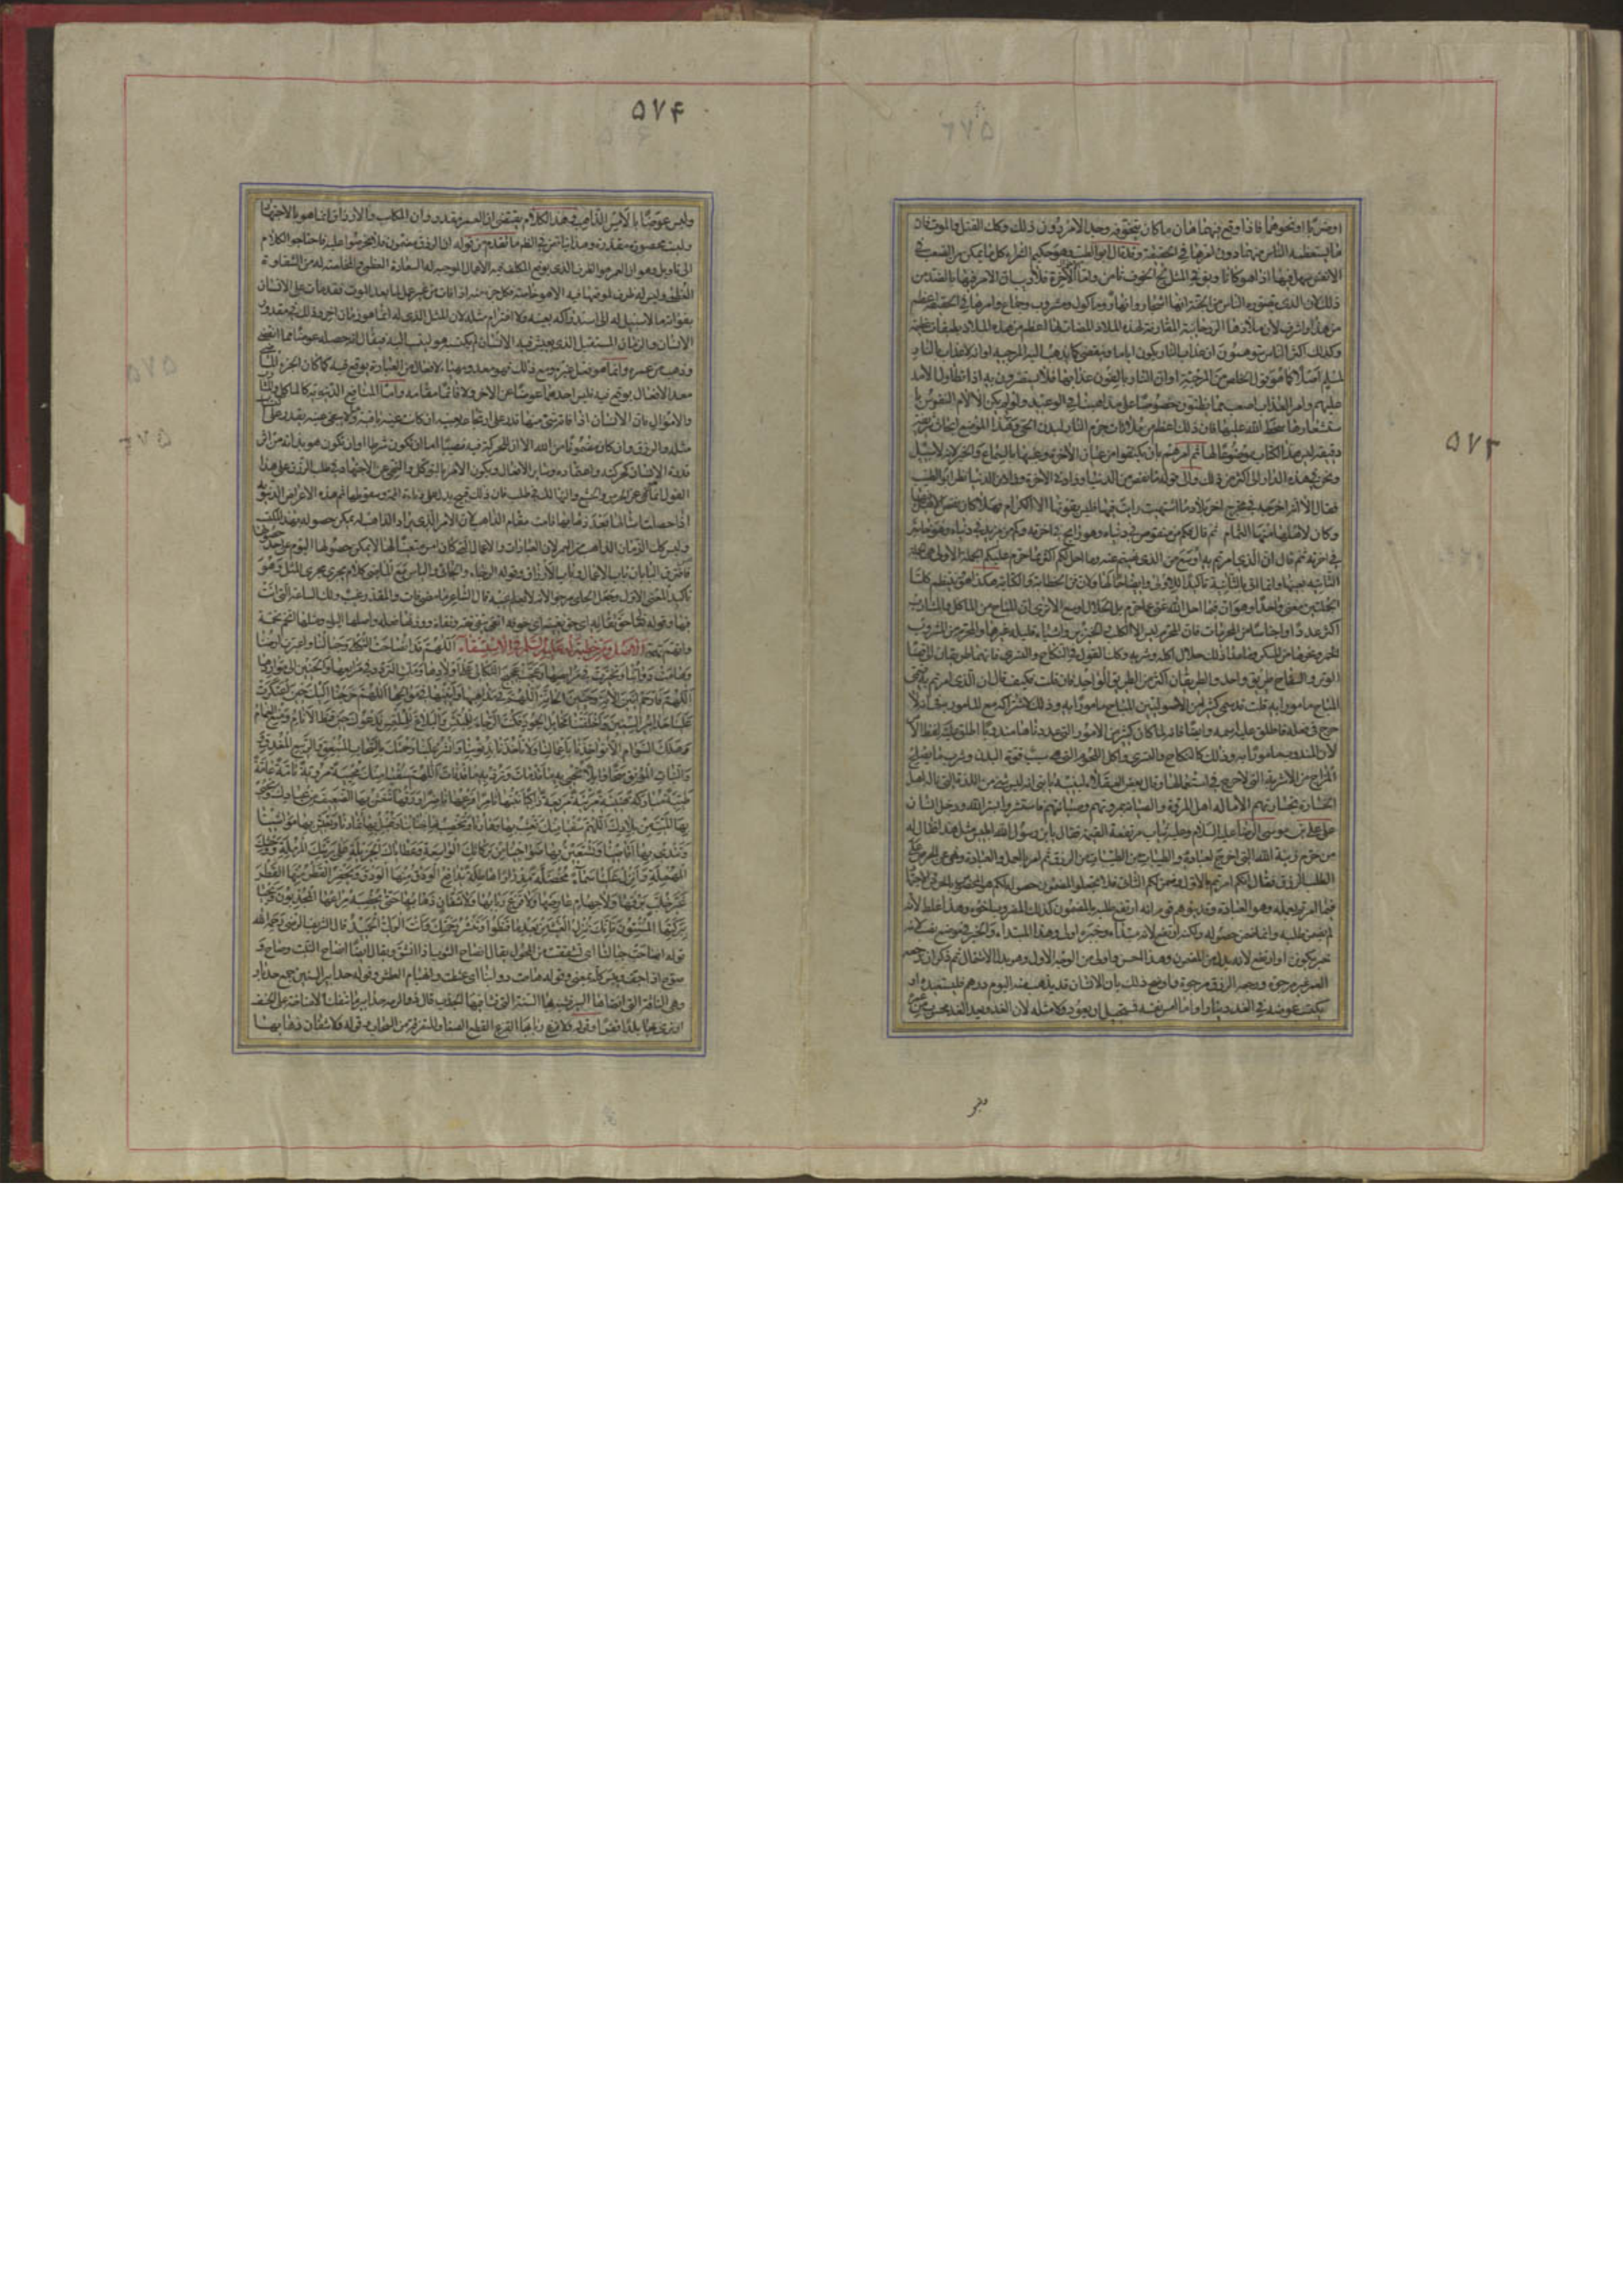 ۵۷۳
او ضربا او نحوهما فاذا وقع فيهما هان ما كان يتخوفه وجد الامر دون ذلك وكذلك القتل والموت فان
ما يستعظمه الناس منهما دون امرهما في الحقيقة وقد قال ابو الطيب وهو حكيم الشعراء كل ما لم يكن من الصعب في
الانفس سهل فيها اذا هو كانا ويقال في المثل لج الخوف تأمن واما الآخرة فلا ريب ان الامر فيها بالضد من
ذلك لان الذي يتصوره الناس من الجنة انها اشجار وانهار ومأكول ومشروب وجماع وامرها في الحقيقة اعظم
من هذا واشرف لان ملاذها الروحانية المقارنة لهذه الملاذ المضادة لها اعظم من هذه الملاذ بطبقات عظيمة
وكذلك اكثر الناس يتوهمون ان عذاب النار يكون اياما وينقضي كما يذهب اليه المرجئة او انه لا عذاب بالنار
لمسلم اصلا كما هو قول الخلص من المرجئة او ان اهل النار يألفون عذابها فلا يستضرون به اذا تطاول الامد
عليهم وامر العذاب اصعب مما يظنون خصوصا على مذاهبنا في الوعيد ولو لم يكن الا آلام النفوس با
ستشعارها سخط الله عليها فان ذلك اعظم من ملاقات جرم النار لبدن الحي وفي هذا الموضع ابحاث شريفة
دقيقة ليس هذا الكتاب موضوعا لها ثم امرهم بان يكتفوا من عيان الآخرة وغيبها بالسماع والخبر لانه لا سبيل
ونحن في هذه الدار الى اكثر من ذلك والى قوله ما نقص من الدنيا وزاد في الآخرة خير مما نقص من الآخرة وزاد في الدنيا نظر ابو الطيب
فقال
وكان لاهلها منها التمام ثم قال فكم من منقوص في دنياه وهو رابح في آخرته وكم من مزيد في دنياه وهو خاسر
في آخرته ثم قال ان الذي امرتم به اوسع من الذي نهيتم عنه وما احل لكم اكثر مما حرم عليكم الجملة الاولى هي
الثانية بعينها وانما اتى بالثانية تأكيدا للاولى وايضاحا لها ولان فن الخطابة والكتابة هكذا هو وينتظم كلتا
الجملتين معنى واحد وهو ان فيما احل الله غنى عما حرم بل الحلال اوسع الا ترى ان المباح من المآكل والمشارب
اكثر عددا واجناسا من المحرمات فان المحرم ليس الا الكلب والخنزير واشياء قليلة غيرهما والمحرم من المشروب
الخمر ونحوها من المسكر وما عدا ذلك حلال اكله وشربه وكذلك القول في النكاح والتسري فانهما طريقان الى قضاء
الوطر والسفاح طريق واحد والطريقان اكثر من الطريق الواحد فان قلت فكيف قال ان الذي امرتم به فسمى
المباح مامورا به قلت قد سمى كثير من الاصوليين المباح مامورا به وذلك لاشتراكه مع المامور به في انه لا
حرج في فعله فاطلق عليه اسمه وايضا فانه لما كان كثير من الامور التي عددناها مندوبا اطلق عليه لفظ الامر
لان المندوب مامور به وذلك كالنكاح والتسري واكل اللحوم التي هي سبب قوة البدن وشرب ما يصلح
المزاج من الاشربة التي لا حرج في استعمالها وقال بعض العقلاء لبنيه يا بني انه ليس شيء من اللذة ناله اهل
الخسارة بخسارتهم الا ناله اهل المروة والصيانة بمروتهم وصيانتهم فاستتروا بستر الله ودخل انسان
على علي بن موسى الرضا عليه السلام وعليه ثياب مرتفعة القيمة فقال يا بن رسول الله اتلبس مثل هذا فقال له
من حرم زينة الله التي اخرج لعباده والطيبات من الرزق ثم امر بالعمل والعبادة ونهى عن الحرص على
الطلب الرزق فقال انكم امرتم بالاول وضمن لكم الثاني فلا تجعلوا المضمون حصوله لكم هو المخصوص بالحرص والاجتهاد
فيما امرتم بعمله وهو العبادة وقد يتوهم قوم انه ارتفع طلبه بالمضمون كقولك المضروب اخوه وهذا غلط لانه
لم يضمن طلبه وانما ضمن حصوله ولكنه ارتفع لانه مبتدأ وخبره اولى وهذا المبتدأ والخبر في موضع نصب لانه
خبر يكون او ارتفع لانه بدل من المضمون وهذا احسن واولى من الوجه الاول وهو بدل الاشتمال ثم ذكر ان رجعة
العمر غير مرجوة ورجعة الرزق مرجوة واوضح ذلك بان الانسان قد يذهب منه اليوم درهم فيستعيده او
يكتسب عوضه في الغد دينارا واما امس نفسه فمستحيل ان يعود ولا مثله لان الغد وبعد الغد محسوب من عمره
۵۷۴
وليس عوضا من الامس الذاهب وهذا الكلام يقتضي ان العمر مقدور وان المكاسب والارزاق انما هو بالاجتهاد
وليست محصورة مقدرة وهذا يناقض في الظاهر ما تقدم من قوله ان الرزق مضمون فلا تحرصوا عليه فاحتاج الكلام
الى تاويل وهو ان العمر هو الظرف الذي يوقع المكلف فيه الاعمال الموجبة له السعادة العظمى والمخلصة له من الشقاوة
العظمى وليس له ظرف يوقعها فيه الا هو خاصة فكل جزء منه اذا فات من غير عمل لما بعد الموت فقد فات على الانسان
بفواته ما لا سبيل له الى استدراكه بعينه ولا اغترام مثله لان المثل الذي له انما هو زمان آخر وذلك في مقدور
الانسان والزمان المستقبل الذي يعيش فيه الانسان لم يكتسبه هو لينسب اليه فيقال انه حصله عوضا مما انقضى
وذهب من عمره وانما هو فعل غيره ومع ذلك فهو معد ومهيأ لافعال من العبادة توقع فيه كما كان الجزء الماضي
معدا لافعال توقع فيه فليس احدهما عوضا عن الآخر ولا قائما مقامه واما المنافع الدنيوية كالمآكل والمشارب
والاموال فان الانسان اذا فاته شيء منها قدر على ارتجاعه بعينه ان كانت عينه باقية وما لا تبقى عينه يقدر على اكتساب
مثله والرزق وان كان مضمونا من الله الا ان للحركة فيه نصيبا اما ان يكون شرطا او ان يكون هو بذاته من اثر
قدرة الانسان كحركته واعتماده وسائر الافعال ويكون الامر بالتوكل والنهي عن الاجتهاد في طلب الرزق على هذا
القول انما هي عن الحرص والجشع والتهالك في طلب فان ذلك قبيح يدل على دناءة الهمة وسقوطها ثم هذه الاغراض الدنيوية
اذا حصلت امثالها بعد ذهابها قامت مقام الذاهب لان الامر الذي يراد الذاهب له يمكن حصوله بهذا المكتسب
وليس كذلك الزمان الذاهب من العمر لان العبادات والاعمال التي كان امس متعينا لها لا يمكن حصولها اليوم على حد حصولها
فافترق البابان باب الاعمال وباب الارزاق وقوله الرجاء مع الجائي والياس مع الماضي كلام يجري مجرى المثل وهو
تأكيد للمعنى الاول وجعل الجائي مرجوا لانه لا يعلم غيبه قال الشاعر ما مضى فات والمقدر غيب ولك الساعة التي انت
فيها وقوله حق تقاته اي حق تقيته اي خوفه اتقى يتقي تقية وتقاة ووزنها فعلة واصلها الياء ومثلها اتخم تخمة
واتهم تهمة الاصل ومن خطبة له عليه السلم في الاستسقاء اللهم قد انصاحت جبالنا واغبرت ارضنا
وهامت دوابنا وتحيرت في مرابضها وعجت عجيج الثكالى على اولادها وملت التردد في مراتعها والحنين الى مواردها
اللهم فارحم انين الآنة وحنين الحانة اللهم فارحم حيرتها في مذاهبها وانينها في موالجها اللهم خرجنا اليك حين اعتكرت
علينا حدابير السنين واخلفتنا مخايل الجود فكنت الرجاء للمبتئس والبلاغ للملتمس ندعوك حين قنط الانام ومنع الغمام
وهلك السوام الا تؤاخذنا باعمالنا ولا تأخذنا بذنوبنا وانشر علينا رحمتك بالسحاب المنبعق والربيع المغدق
والنبات المونق سحا وابلا تحيي به ما قد مات وترد به ما قد فات اللهم سقيا منك محيية مروية تامة عامة
طيبة مباركة هنيئة مريئة مريعة زاكيا نبتها ثامرا فرعها ناضرا ورقها تنعش بها الضعيف من عبادك وتحيي
بها الميت من بلادك اللهم سقيا منك تعشب بها نجادنا وتجري بها وهادنا وتخصب بها جنابنا وتقبل بها ثمارنا وتعيش بها مواشينا
وتندى بها اقاصينا وتستعين بها ضواحينا من بركاتك الواسعة وعطاياك الجزيلة على بريتك المرملة ووحشك
المهملة وانزل علينا سماء مخضلة مدرارا هاطلة يدافع الودق منها الودق ويحفز القطر منها القطر
غير خلب برقها ولا جهام عارضها ولا قزع ربابها ولا شفان ذهابها حتى يخصب لامراعها المجدبون ويحيا
ببركتها المسنتون فانك تنزل الغيث من بعد ما قنطوا وتنشر رحمتك وانت الولي الحميد قال الشريف الرضي رحمه الله
قوله انصاحت جبالنا اي تشققت من المحول يقال انصاح الثوب اذا انشق ويقال ايضا انصاح النبت وصاح و
صوح اذا جف ويبس كله بمعنى وقوله هامت دوابنا اي عطشت والهيام العطش وقوله حدابير السنين جمع حدبار
وهي الناقة التي انضاها السير فشبه بها السنة التي فشا فيها الجدب قال ذو الرمة حدابير ما تنفك الا مناخة على الخسف
او نرمي بها بلدا قفرا وقوله ولا قزع ربابها القزع القطع الصغار المتفرقة من السحاب وقوله ولا شفان ذهابها